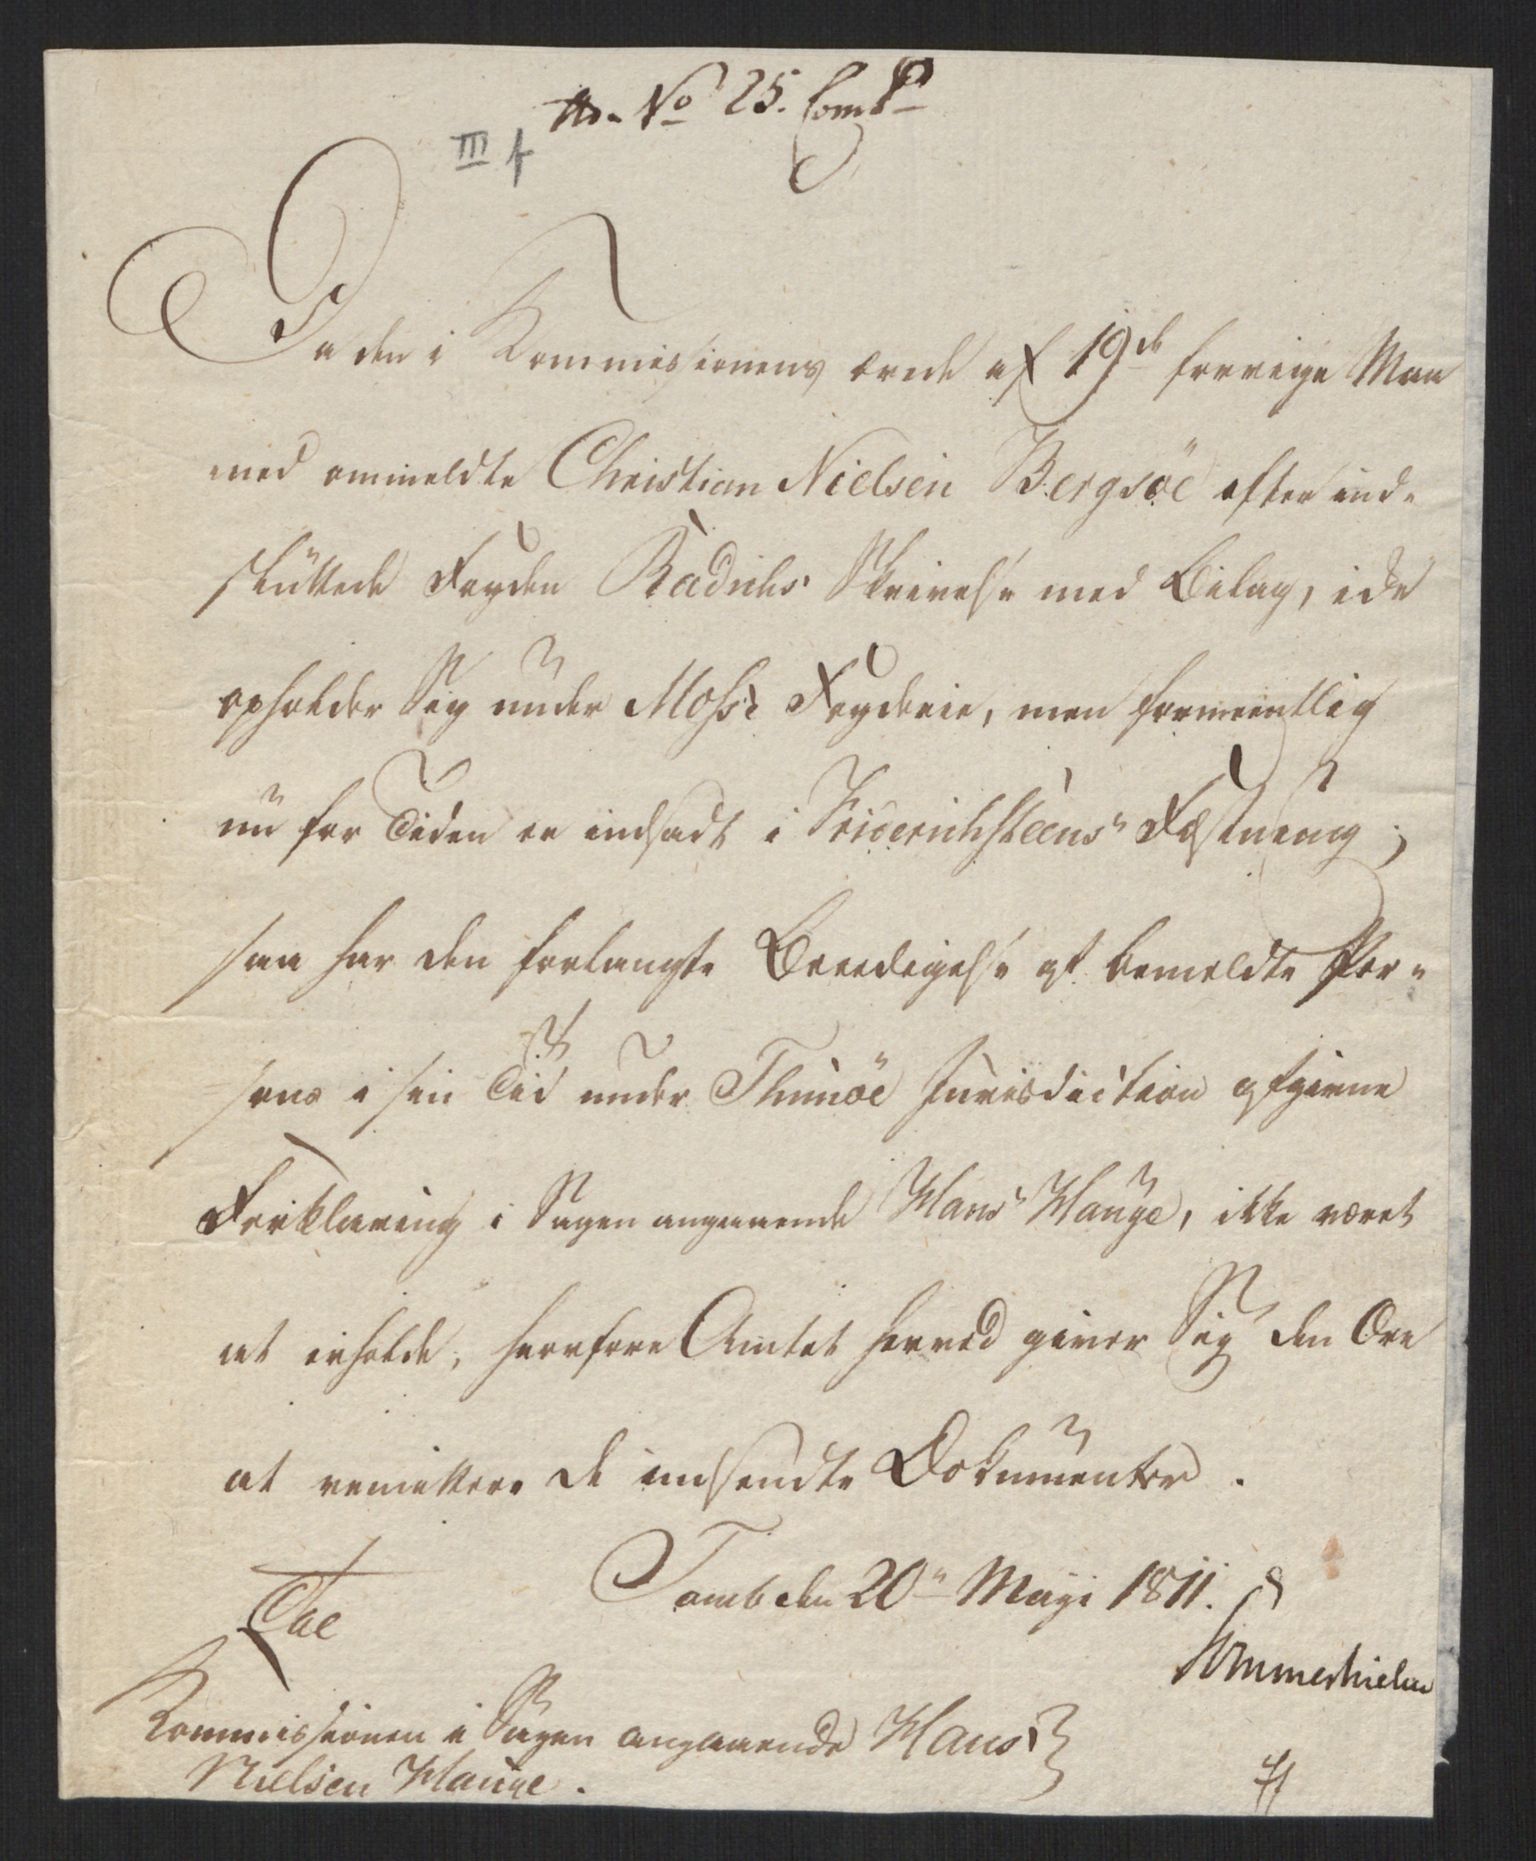 No 25.
III f
Da den i Kommissionens ærede af 19de forrige Maa
ned ommeldte Christian Nielsen Bergsöe efter ind-
sluttede Fogden Radichs Skrivelse med Bilag, ide
opholder Sig under Mosse Fogderie, men formeentlig
nu for Tiden er indsadt i Friderichsteens Fæstning;
saa har den forlangte Beeedigelse af bemeldte Per-
sons i sin Tid under Thunöe Jurisdiction afgivne
Forklaring i Sagen angaaende Hans Hauge, ikke været
at erholde, hvorfore Amtet herved giver Sig den Ære
at remittere de indsendte Dokumenter.
Tomb den 20n Mayi 1811.
Sommerhielm
Til
Kommissionen i Sagen angaaende Hans
Nielsen Hauge.